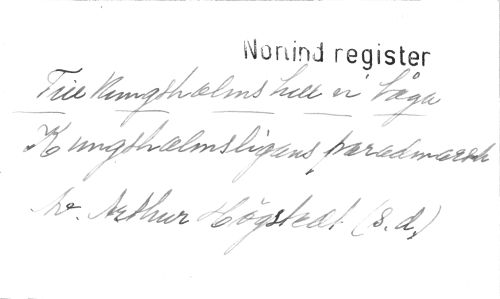 Nonind register
Till Kungsholms hill vi tåga
Kungsholmsligans paradmarsch
Av. Arthur Högstedt (s.d.)